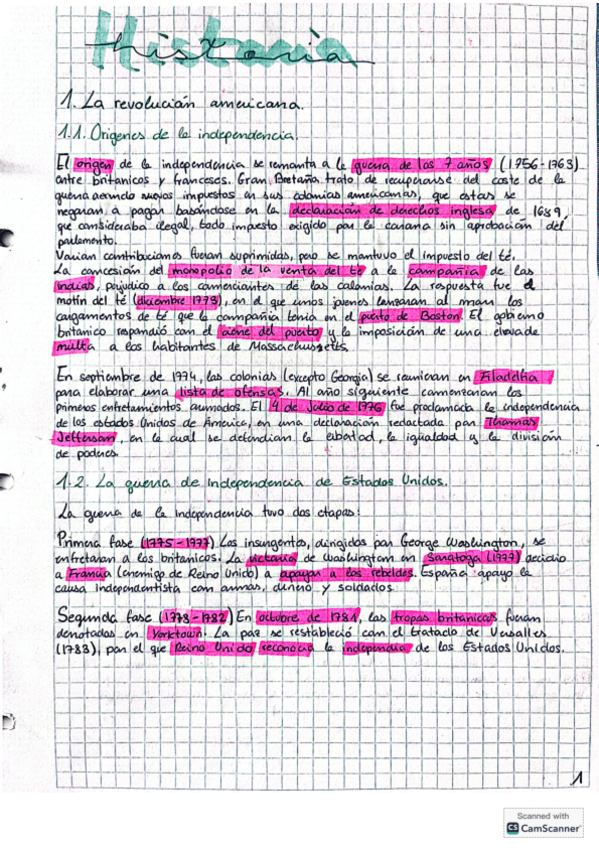 Historia
1. La revolución americana.
1.1. Origenes de la independencia.
El origen de la independencia se remonta a la guerra de los 7 años (1756-1763)
entre britanicos y franceses. Gran Bretaña trato de recuperarse del coste de la
guerra nuevos impuestos en sus colonias americanas, que estas se
negaron a pagar basándose en la declaración de derechos inglesa de 1689,
que consideraba ilegal, todo impuesto exigido por la corona sin aprobación del
parlamento.
Varian contribuciones fueron suprimidas, pero se mantuvo el impuesto del té.
La concesión del monopolio de la venta del té a la campañia de las
indias, perjudico a los comerciantes de las colonias. La respuesta fue el
motín del té (diciembre 1773), en el que unos jovenes lanzaron al mar los
cargamentos de té que la compañia tenia en el puerto de Boston. El gobierno
britanico respondió con el cierre del puerto y la imposición de una elevada
multa a los habitantes de Massachussets.
En septiembre de 1774, las colonias (excepto Georgia) se reunieron en Filadelfia
para elaborar una lista de ofensas. Al año siguiente comenzaron los
primeros enfretamientos armados. El 4 de Julio de 1776 fue proclamada la independencia
de los estados Unidos de América, en una declaración redactada por Thomas
Jefferson, en la cual se defendian la libertad, la igualdad y la división
de poderes.
1.2. La guerra de Independencia de Estados Unidos.
La guerra de la Independencia tuvo dos etapas:
Primera fase (1775-1777) Los insurgentes, dirigidos por George Washington, se
enfretaron a los britanicos. La victoria de Washington en Saratoga (1777) decidio
a Francia (enemigo de Reino Unido) a apoyar a los rebeldes. España apoyo la
causa independentista con armas, dinero y soldados
Segunda fase (1778-1782) En octubre de 1781, las tropas britanicas fueron
derrotadas en Yorktown. La paz se restableció con el tratado de Versalles
(1783), por el que Reino Unido reconocia la independia de los Estados Unidos.
1
Scanned with
CS CamScanner